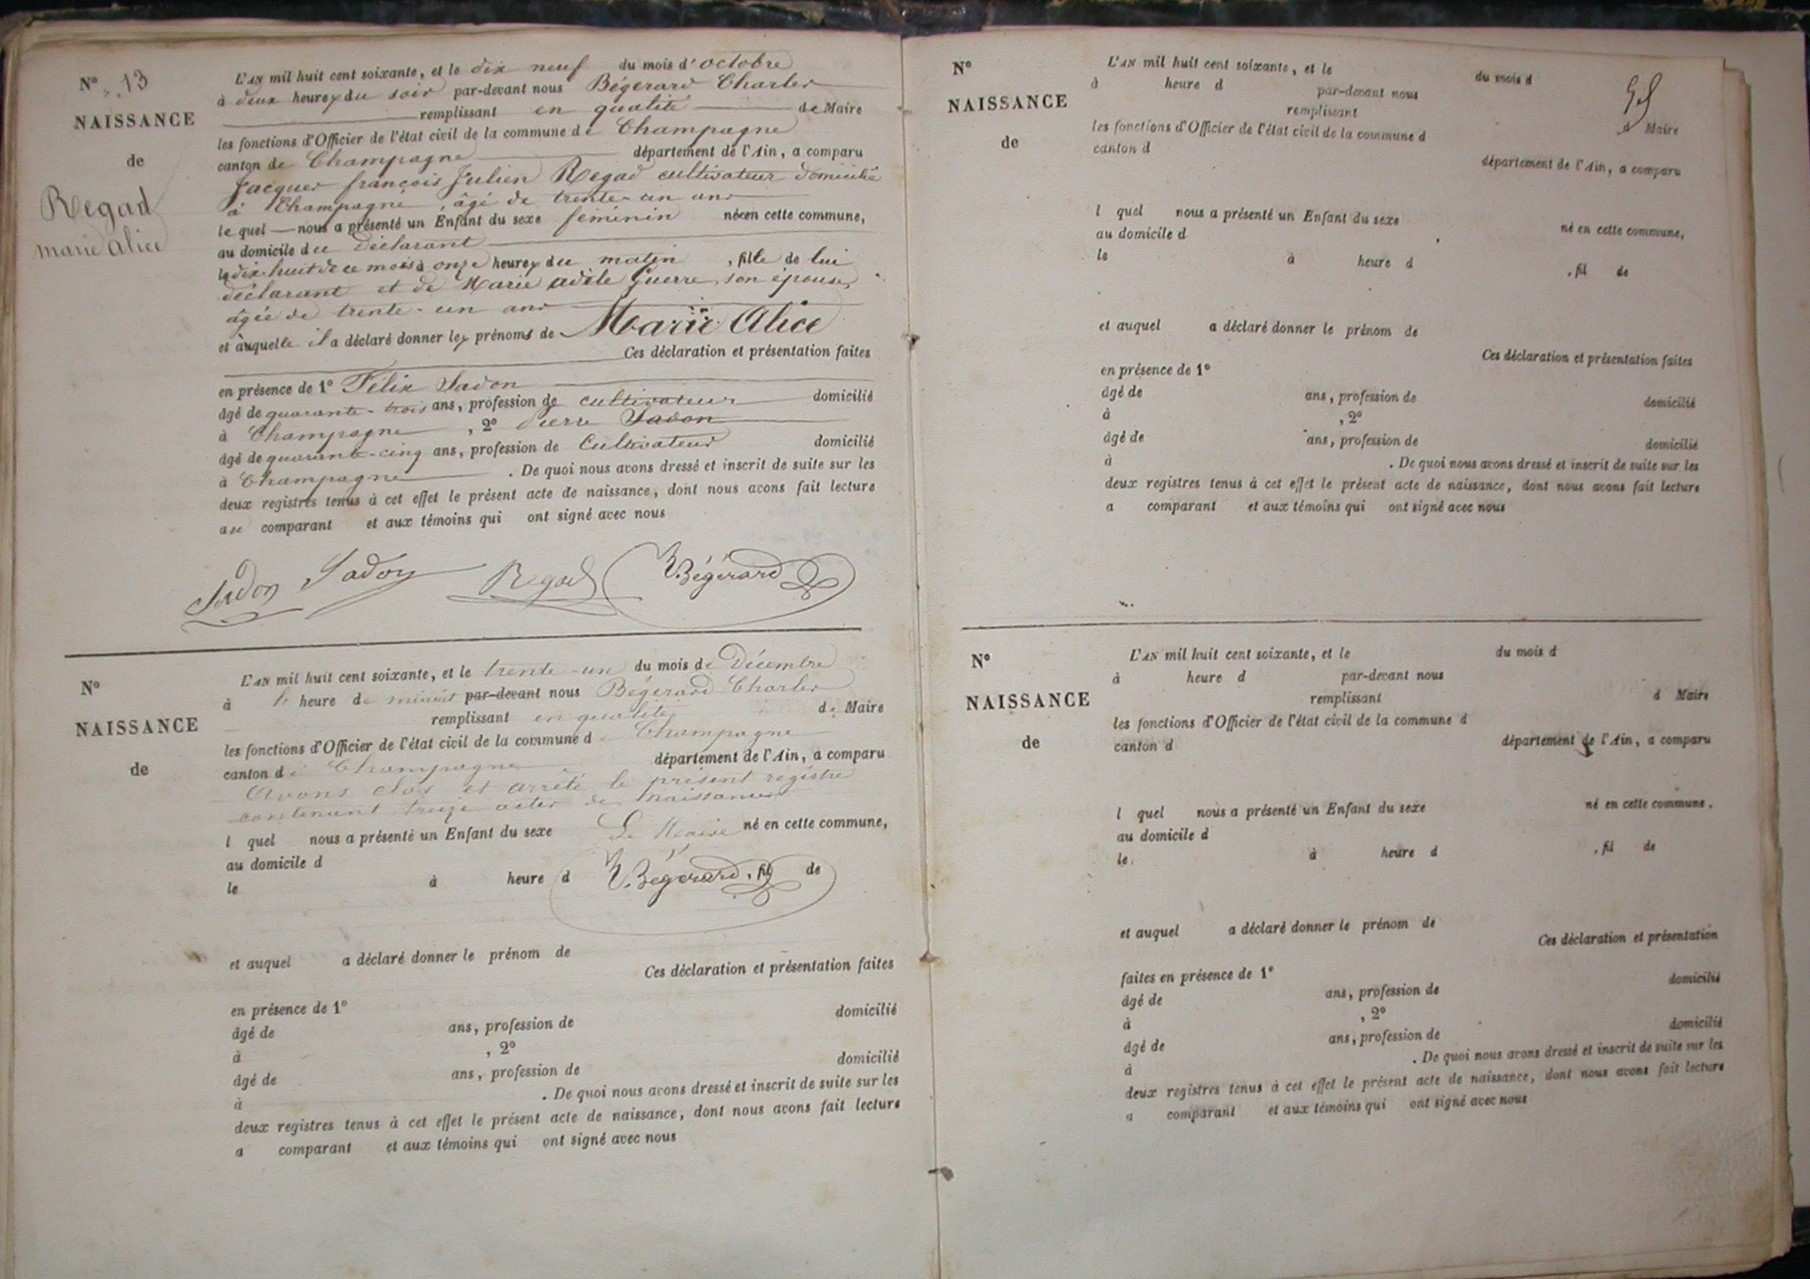 N° 13
NAISSANCE
de
Regad
marie Alice
L'AN mil huit cent soixante, et le dix neuf du mois d'octobre
à deux heures du soir par-devant nous Bégerard Charles
remplissant en qualité de Maire
les fonctions d'Officier de l'état civil de la commune de Champagne
canton de Champagne département de l'Ain, a comparu
Jacques françois Julien Regad cultivateur domicilié
à Champagne, âgé de trente-un ans
lequel nous a présenté un Enfant du sexe féminin née en cette commune,
au domicile du déclarant
le dix-huit de ce mois à onze heures du matin, fille de lui
déclarant et de Marie adèle Guerre, son épouse,
âgée de trente-un ans
et à auquelle il a déclaré donner les prénoms de Marie Alice
Ces déclaration et présentation faites
en présence de 1° Félix Sadon
âgé de quarante-trois ans, profession de cultivateur domicilié
à Champagne, 2° Pierre Sadon
âgé de quarante-cinq ans, profession de Cultivateur domicilié
à Champagne. De quoi nous avons dressé et inscrit de suite sur les
deux registres tenus à cet effet le présent acte de naissance, dont nous avons fait lecture
au comparant et aux témoins qui ont signé avec nous
Sadon Sadon Regad Bégerard
N°
NAISSANCE
de
L'AN mil huit cent soixante, et le trente-un du mois de Décembre
à heure de minuit par-devant nous Bégerard Charles
remplissant en qualité de Maire
les fonctions d'Officier de l'état civil de la commune de Champagne
canton de Champagne département de l'Ain, a comparu
Avons clos et arrêté le présent registre
contenant treize actes de Naissances
l quel nous a présenté un Enfant du sexe Le Maire né en cette commune,
au domicile d
le à heure d Bégerard, fil de
et auquel a déclaré donner le prénom de
Ces déclaration et présentation faites
en présence de 1°
domicilié
âgé de ans, profession de
à , 2°
domicilié
âgé de ans, profession de
à . De quoi nous avons dressé et inscrit de suite sur les
deux registres tenus à cet effet le présent acte de naissance, dont nous avons fait lecture
a comparant et aux témoins qui ont signé avec nous
N°
NAISSANCE
de
L'AN mil huit cent soixante, et le du mois d
à heure d par-devant nous
remplissant d Maire
les fonctions d'Officier de l'état civil de la commune d
canton d département de l'Ain, a comparu
l quel nous a présenté un Enfant du sexe né en cette commune,
au domicile d
le à heure d , fil de
et auquel a déclaré donner le prénom de
Ces déclaration et présentation faites
en présence de 1°
âgé de ans, profession de domicilié
à , 2°
âgé de ans, profession de domicilié
à . De quoi nous avons dressé et inscrit de suite sur les
deux registres tenus à cet effet le présent acte de naissance, dont nous avons fait lecture
a comparant et aux témoins qui ont signé avec nous
N°
NAISSANCE
de
L'AN mil huit cent soixante, et le du mois d
à heure d par-devant nous
remplissant d Maire
les fonctions d'Officier de l'état civil de la commune d
canton d département de l'Ain, a comparu
l quel nous a présenté un Enfant du sexe né en cette commune,
au domicile d
le à heure d , fil de
et auquel a déclaré donner le prénom de
Ces déclaration et présentation
faites en présence de 1°
domicilié
âgé de ans, profession de
à , 2°
domicilié
âgé de ans, profession de
à . De quoi nous avons dressé et inscrit de suite sur les
deux registres tenus à cet effet le présent acte de naissance, dont nous avons fait lecture
a comparant et aux témoins qui ont signé avec nous